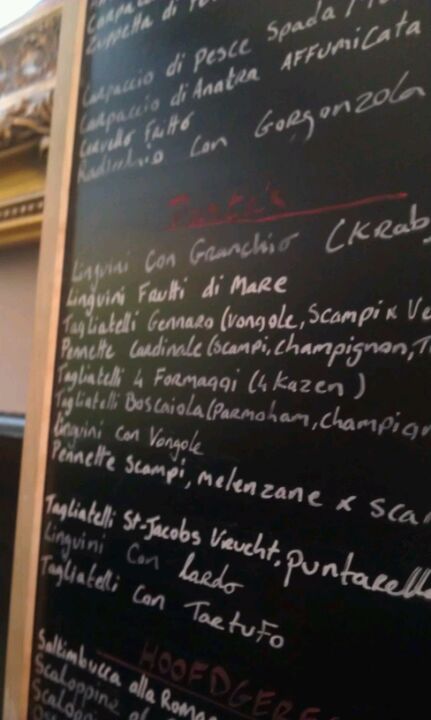 Carpaccio
Zuppetta di
Carpaccio di Pesce Spada /
Carpaccio di Anatra AFFUMICATA
Cervello Fritto
Radicchio con GORGONZOLA
Pasta's
Linguini Con Granchio (KRab,
Linguini Frutti di Mare
Tagliatelli Gennaro (vongole, Scampi x Ve
Pennette Cardinale (scampi, champignon, T
Tagliatelli 4 Formaggi (4 Kazen)
Tagliatelli Boscaiola (Parmaham, champign
Linguini con Vongole
Pennette Scampi, melenzane x sca
Tagliatelli St-Jacobs Vrucht, puntarell
Linguini Con Lardo
Tagliatelli Con Tartufo
HOOFDGERE
Saltimbucca alla Roma
Scaloppine al
Scalopp